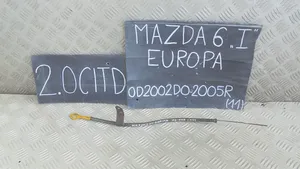 MAZDA 6.I
EUROPA
2.0CITD
OD2002DO2005R
(11)